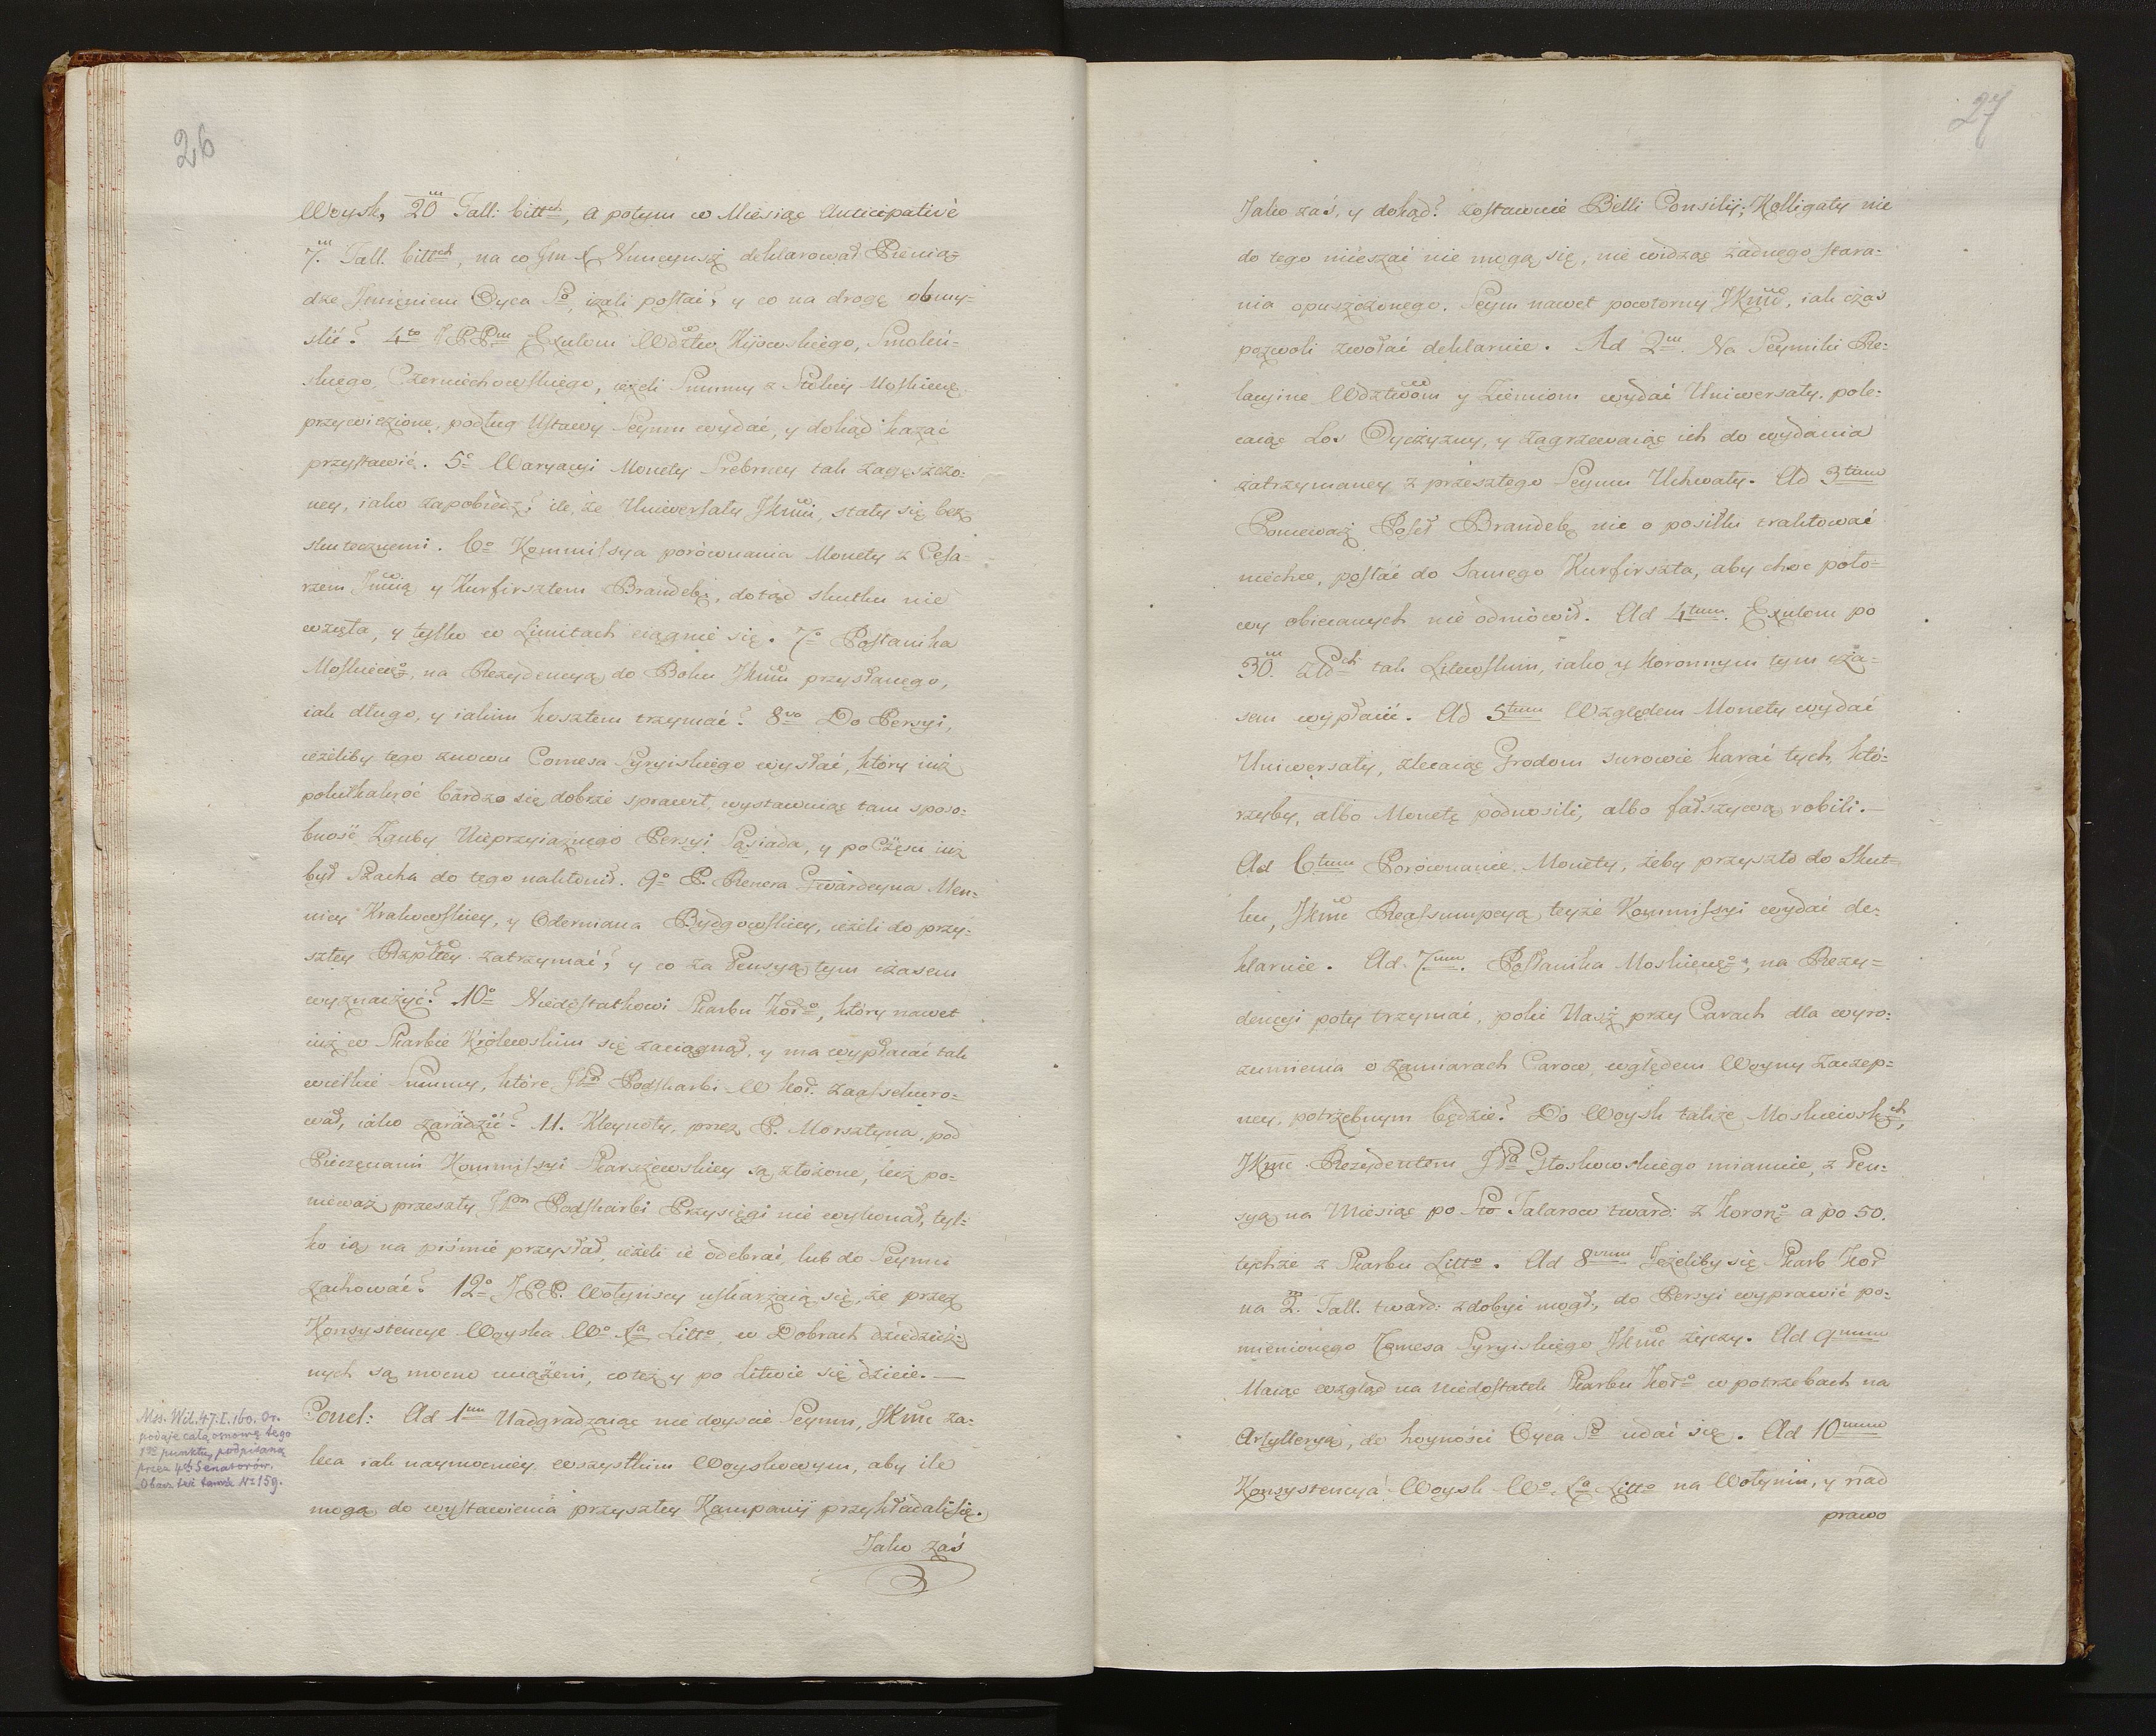 26
Woysk, 20 m Tall: bittch, a potym w Miesiąc Anticipativè
7. m Tall. bittch, na co Jm X Nuncyusz deklarował Pienią-
dze Imięniem Oyca So, iżali posłać? y co na drogę obmy-
slić? 4to JPPm Exulom Wdztw Kijowskiego, Smoleń-
skiego, Czerniechowskiego, ieżeli Summy z Stolicy Moskiewę
przywiezione, podług Ustawy Seymu wydać, y dokąd kazać
przystawić. 5o Waryacyi Monety Srebrney tak zagęszczo-
ney, iako zapobiedz? ile, że Uniwersały JKmci, stały się bez-
skutecznemi. 6o Kommissya porównania Monety z Cesa-
rzem Jmcią y Kurfirsztem Brandebę, dotąd skutku nie
wzięła, y tylko w Limitach ciągnie się. 7o Posłanika
Moskiewgo, na Rezydencyą do Boku JKmci przysłanego,
iak długo, y iakim kosztem trzymać? 8vo Do Persyi,
ieżeliby tego znowu Comesa Syryiskiego wysłać, który iuż
pokilkakroć bardzo się dobrze sprawił, wystawuiąc tam sposo-
bność Zguby Nieprzyiaznego Persyi Sąsiada, y po Części iuż
był Szacha do tego nakłonił. 9o P. Renera Gwardeyna Men-
nicy Krakowskiey, y Odermana Bydgowskiey, ieżeli do przy-
szłey Rzpltey zatrzymać? y co za Pensyą tym czasem
wyznaczyć? 10o Niedostatkowi Skarbu Koro, który nawet
iuż w Skarbie Królewskim się zaciągnął, y ma wypłacać tak
wielkie Summy, które JPn Podskarbi W Kor. zaassekuro-
wał, iako zaradzić? 11. Kleynoty, przez P. Morsztyna, pod
Pieczęciami Kommissyi Skarszewskiey są złożone, lecz po-
nieważ przeszły JPn Podskarbi Przysięgi nie wykonał, tyl-
ko ią na piśmie przysłał, ieżeli ie odebrać, lub do Seymu
zachować? 12o JPP. Wołyńscy uskarżaią się, że przez
Konsystencye Woyska Wo Xa Litto, w Dobrach dziedzicz-
nych są mocno uciążeni, co też y po Litwie się dzieie. —
Concl: Ad 1um Nadgradzaiąc nie doyście Seymu, JKmć za-
leca iak naymocniey wszystkim Woyskowym, aby ile
mogą do wystawienia przyszłey Kampanij przykładali się.
Jako zaś
Mss. Wil. 47. I. 160. Or.
podaje całą osnowę tego
1go punktu, podpisaną
przez 4ch Senatorów.
Obacz też tamże No 159.
27
Jako zaś, y dokąd? zostawuie Belli Consilij; Kolligaty nie
do tego mieszać nie mogą się, nie widząc żadnego stara-
nia opuszczonego. Seym nawet powtorny JKmć, iak czas
pozwoli zwołać deklaruie. Ad 2m. Na Seymiki Re-
lacyine Wdztwom y Ziemiom wydać Uniwersały. pole-
caiąc Los Oyczyzny, y zagrzewaiąc ich do wydania
zatrzymaney z przeszłego Seymu Uchwały. Ad 3tium
Ponieważ Poseł Brandebę nie o posiłku traktować
niechce, posłać do Samego Kurfirszta, aby choc poło-
wy obiecanych nie odmówił. Ad 4tum. Exulom po
30. m złPch tak Litewskim, iako y Koronnym tym cza-
sem wypłacić. Ad 5tum Względem Monety wydać
Uniwersały, zlecaiąc Grodom surowie karać tych, któ-
rzyby, albo Monetę podnosili, albo fałszywą robili. —
Ad 6tum Porównanie Monety, żeby przyszło do Skut-
ku, JKmć Reassumpcyą teyże Kommissyi wydać de-
klaruie. Ad. 7mum. Posłanika Moskiewgo, na Rezy-
dencyi poty trzymać, poki Nasz przy Carach dla wyro-
zumienia o zamiarach Carow, względem Woyny Zaczep-
ney, potrzebnym będzie? Do Woysk także Moskiewskch,
JKmć Rezydentem JPa Głoskowskiego mianuie, z Pen-
syą na Miesiąc po Sto Talarow tward: z Koroną a po 50.
tychże z Skarbu Litto. Ad 8vum Jeżeliby się Skarb Kor
na 2. m Tall. tward: zdobyć mogł, do Persyi wyprawić po-
mienionego Komesa Syryiskiego JKmć życzy. Ad 9num
Maiąc wzgląd na niedostatek Skarbu Koro w potrzebach na
Artylleryą, do hoyności Oyca So udać się. Ad 10mum
Konsystencyą Woysk Wo. Xa Litto na Wołyniu, y nad
prawo